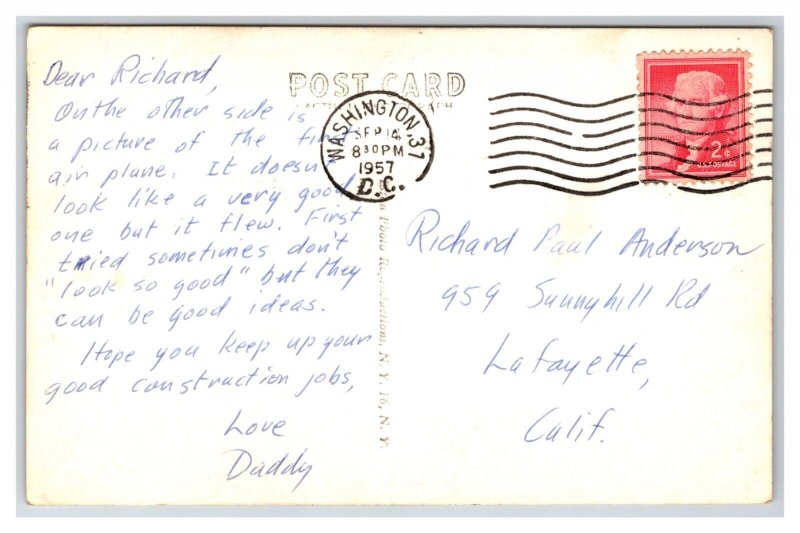 Dear Richard,
On the other side is
a picture of the first
air plane. It doesn't
look like a very good
one but it flew. First
tried sometimes don't
"look so good" but they
can be good ideas.
Hope you keep up your
good construction jobs,
Love
Daddy
POST CARD
WASHINGTON, 37
SEP 14
8 30 PM
1957
D.C.
2¢
U.S. POSTAGE
Photo Reproductions, N. Y. 16, N. Y.
Richard Paul Anderson
959 Sunnyhill Rd
Lafayette,
Calif.